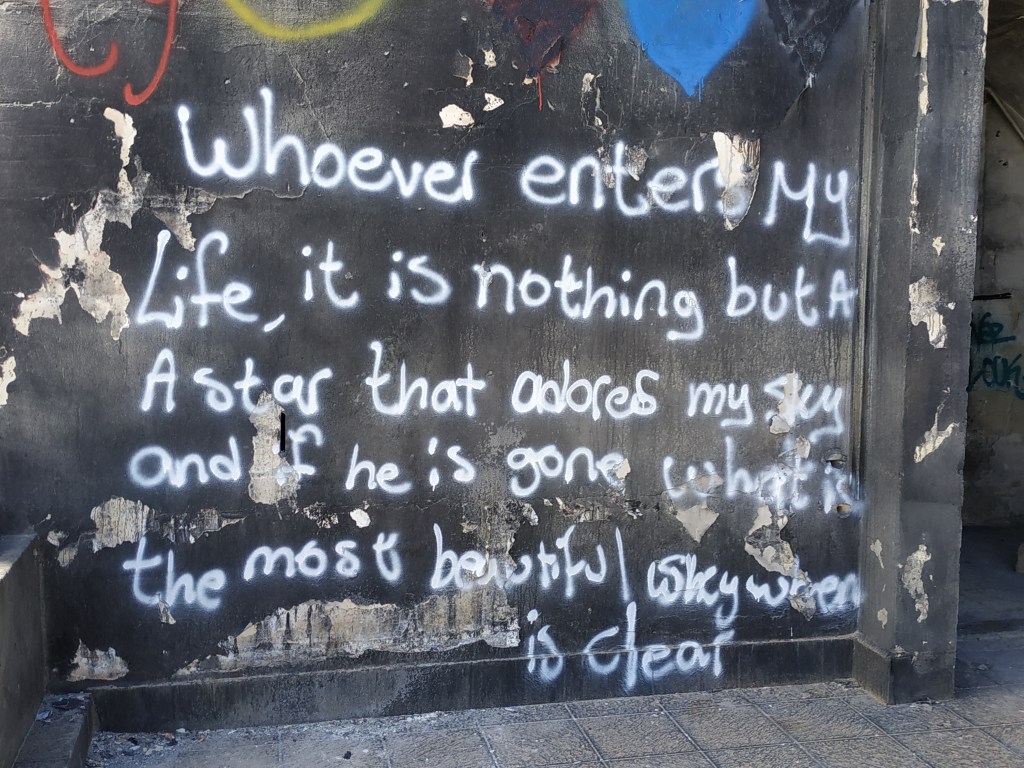 Whoever enters My
Life, it is nothing but A
A star that adores my sky
and if he is gone what is
the most beautiful sky when
is clear